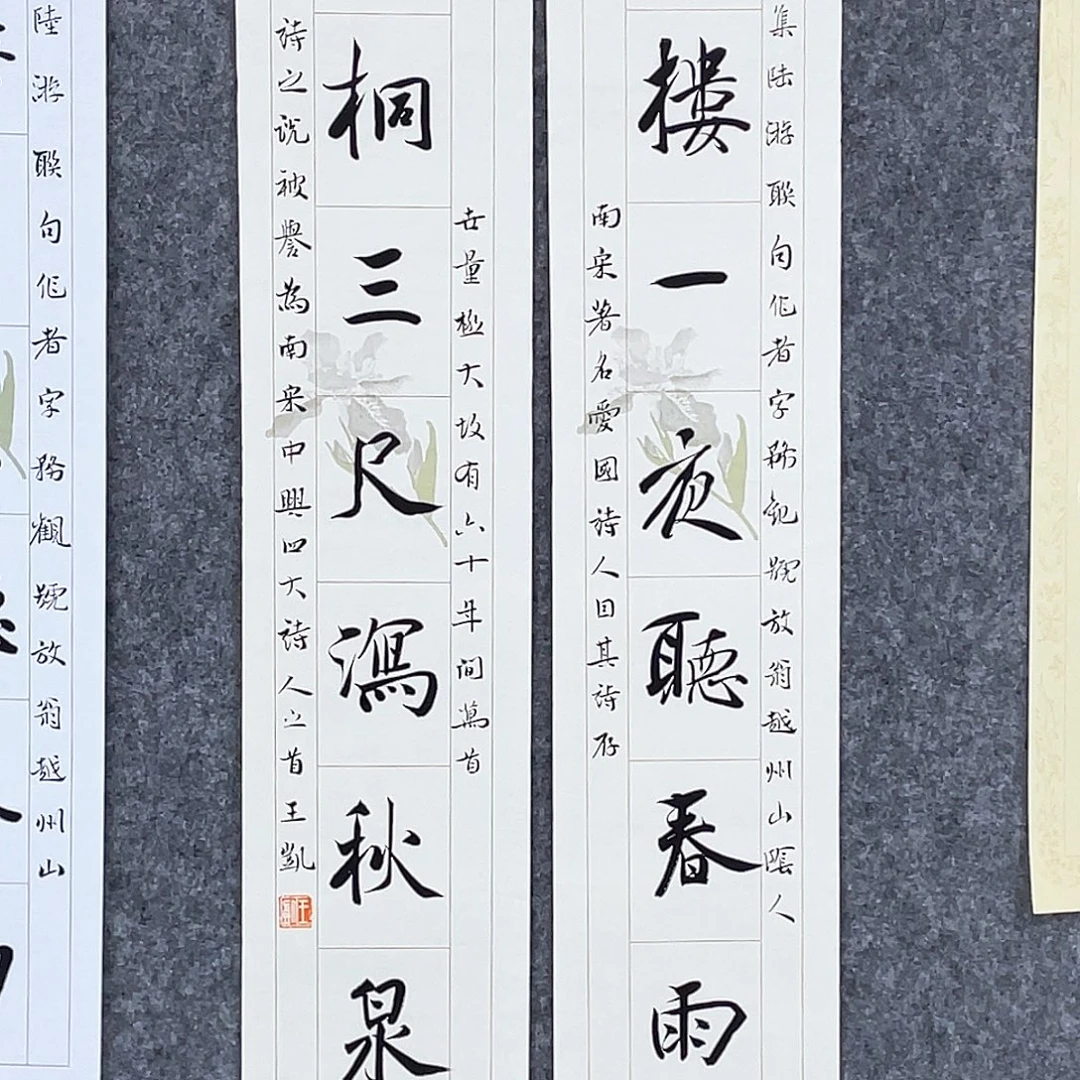 集陸游聯句作者字務觀號放翁越州山陰人
樓一夜聽春雨
南宋著名愛國詩人因其詩存
世量極大故有六十年間萬首
桐三尺瀉秋泉
詩之說被譽為南宋中興四大詩人之首王凱
陸游聯句作者字務觀號放翁越州山